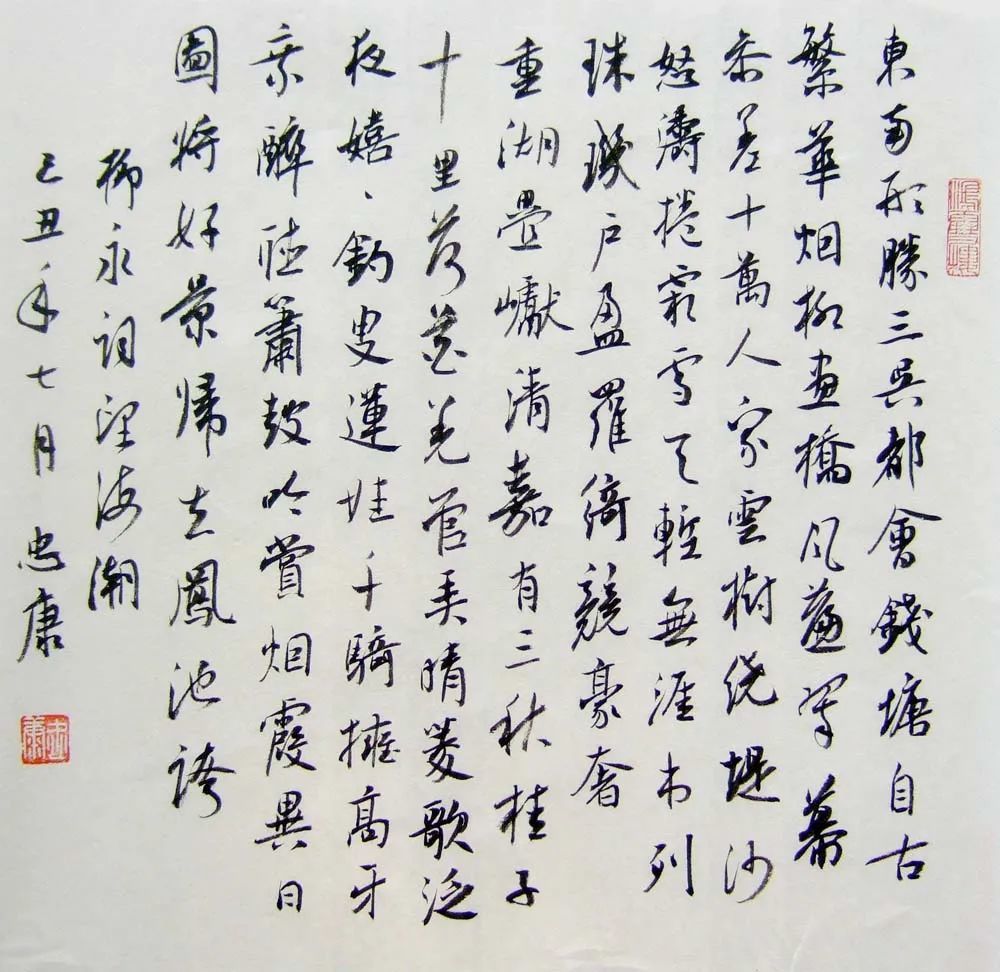 東南形勝三吳都會錢塘自古
繁華烟柳畫橋風簾翠幕
參差十萬人家雲樹繞堤沙
怒濤捲霜雪天塹無涯市列
珠璣戶盈羅綺競豪奢
重湖疊巘清嘉有三秋桂子
十里荷花羌管弄晴菱歌泛
夜嬉〻釣叟蓮娃千騎擁高牙
乘醉聽簫鼓吟賞烟霞異日
圖將好景歸去鳳池誇
柳永詞望海潮
己丑年七月忠康